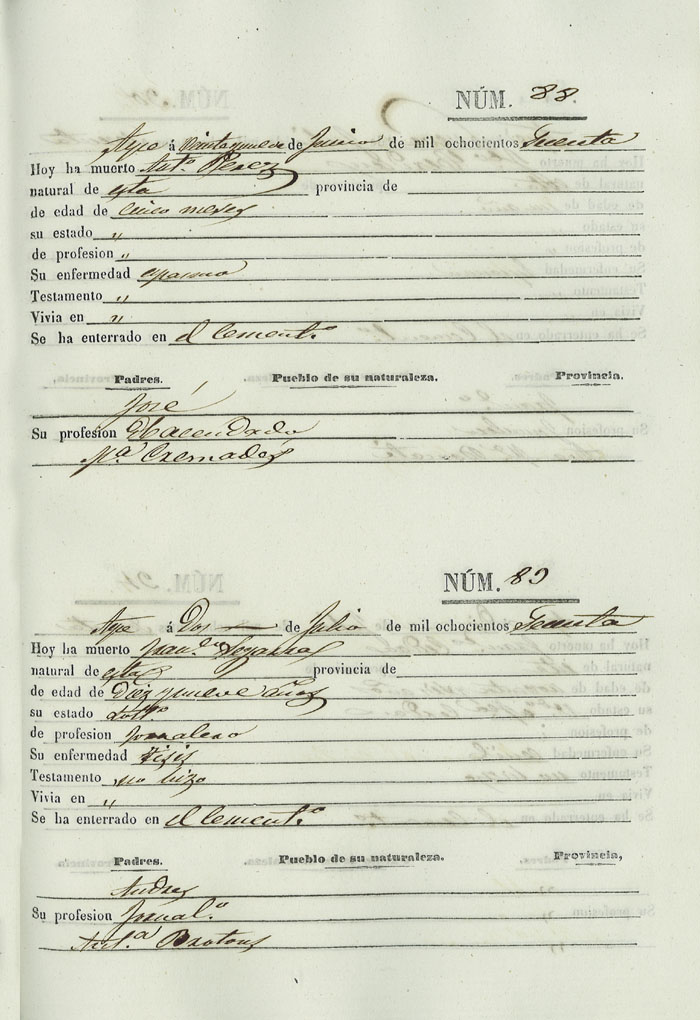 NÚM. 88.
Aspe á Veinte y nueve de Junio de mil ochocientos Treinta
Hoy ha muerto Antº. Perez
natural de esta provincia de
de edad de cinco meses
su estado "
de profesion "
Su enfermedad espasmo
Testamento "
Vivia en "
Se ha enterrado en el Cementº.
Padres. Pueblo de su naturaleza. Provincia.
José
Su profesion Hacendado
Mª. Cremades
NÚM. 89
Aspe á Dos de Julio de mil ochocientos Treinta
Hoy ha muerto
natural de esta provincia de
de edad de Diez y nueve años
su estado Soltº.
de profesion Jornalero
Su enfermedad Tisis
Testamento no hizo
Vivia en "
Se ha enterrado en el Cementº.
Padres. Pueblo de su naturaleza. Provincia,
Andres
Su profesion Jornalº.
Antª. Brotons